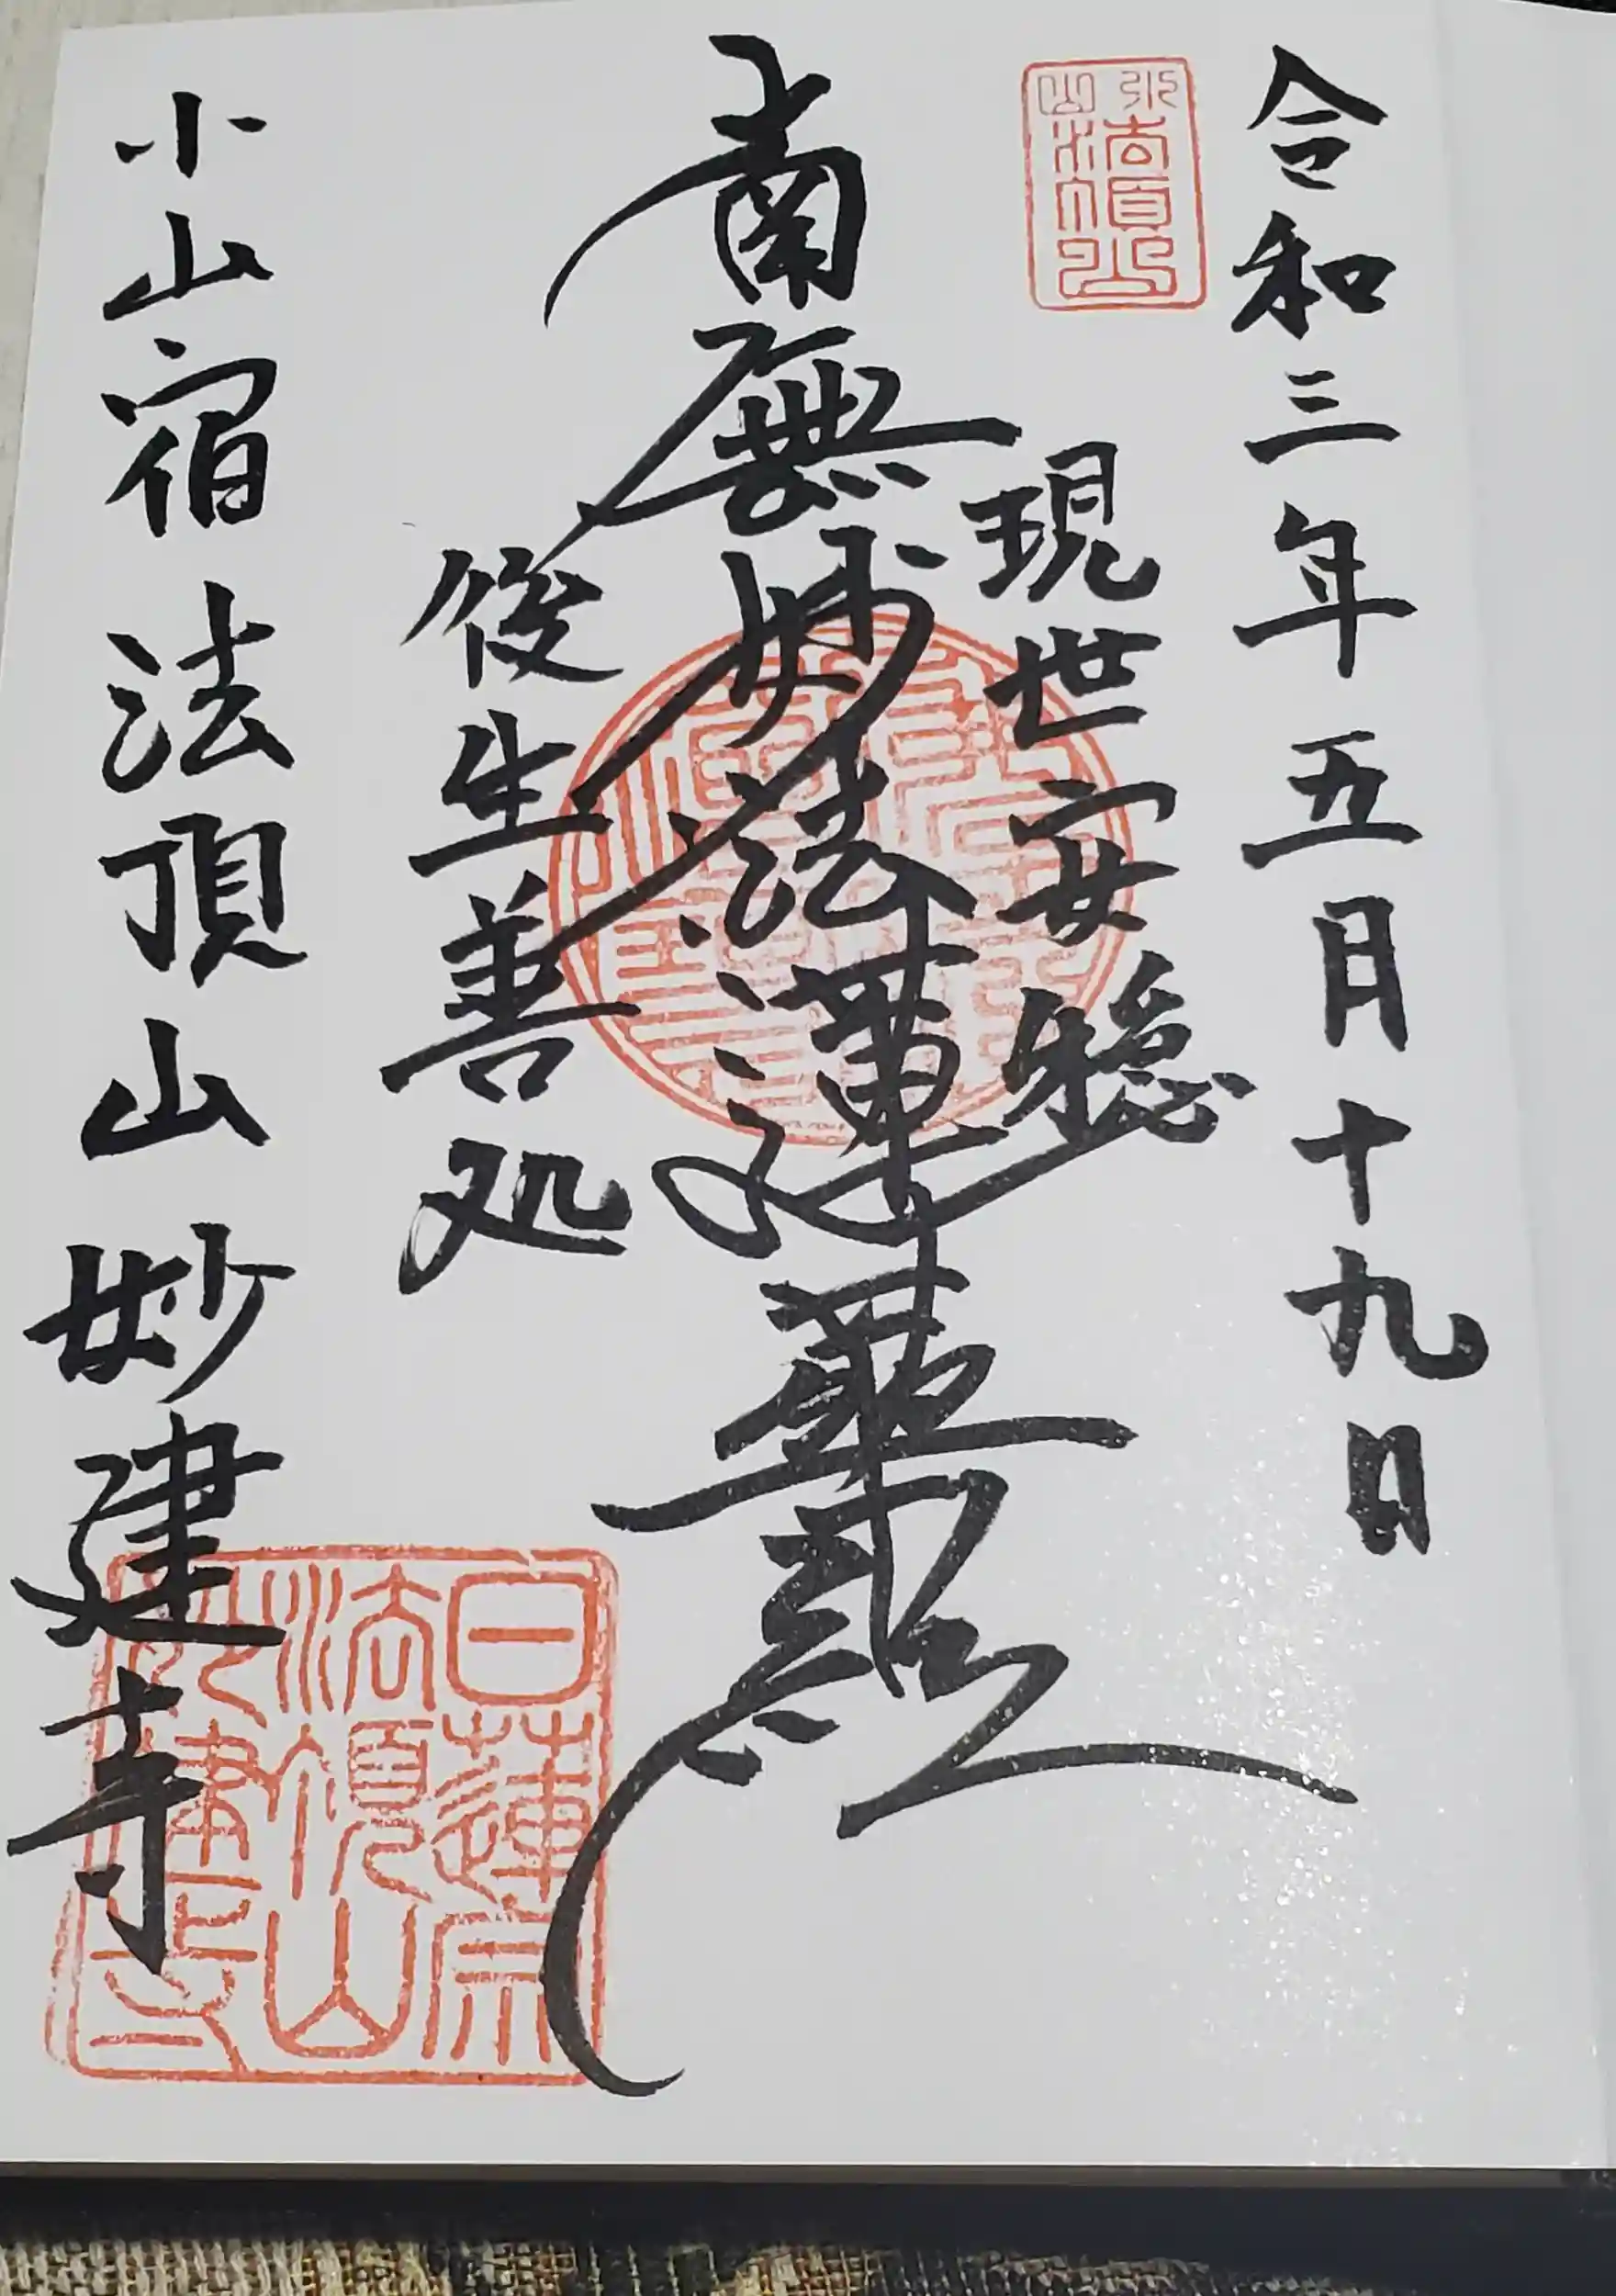 令和三年五月十九日
小山
法頂山
現世安穏
南無妙法蓮華経
後生善処
小山宿 法頂山 妙建寺
日蓮宗
法頂山
妙建寺